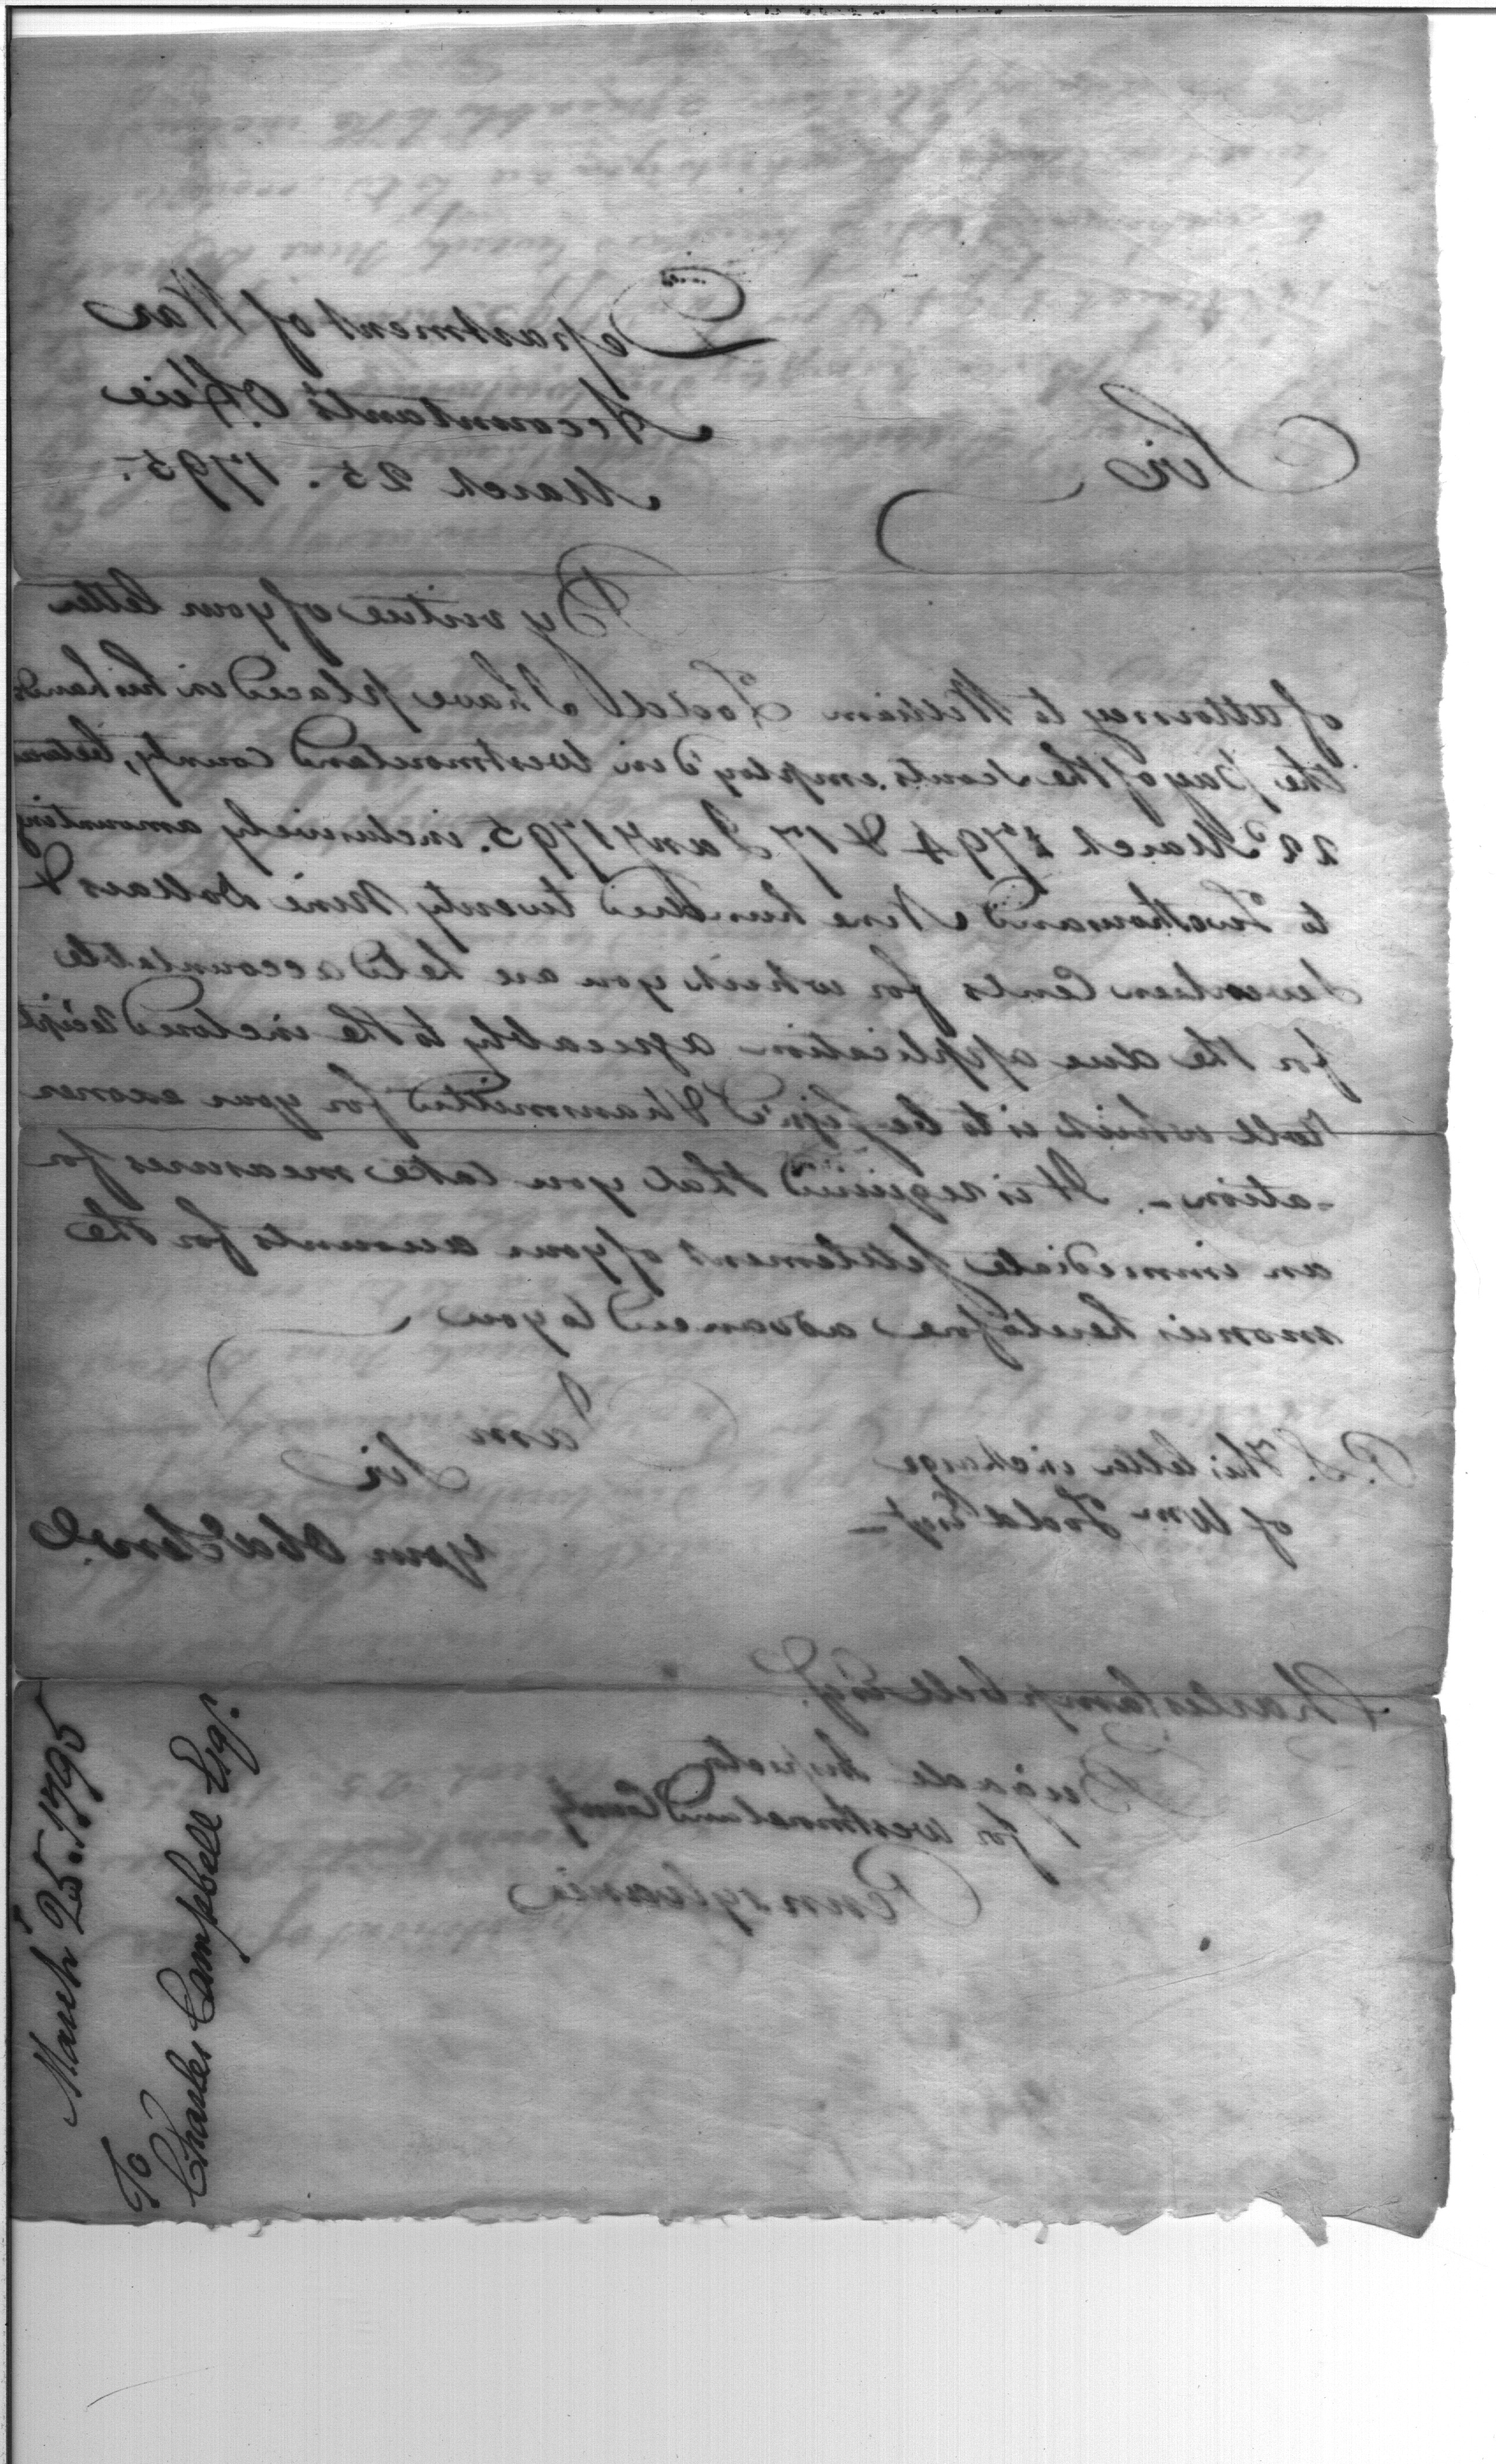 Department of War
Accountant's Office
March 25. 1795.
Sir
By virtue of your letter
of attorney to William Todd I have placed in his hands
the pay of the Scouts employ'd in Westmoreland County, between
22d March 1794 & 17 Jany 1795. inclusively amounting
to Two thousand Nine hundred twenty Nine Dollars &
Seventeen Cents for which you are held accountable
for the due application agreeably to the inclosed receipt
roll which is to be sign'd & transmitted for your exoner
-ation. - It is required that you take measures for
an immediate settlement of your accounts for the
monies heretofore advanced to you
I am
Sir
your Obd Serv
P.S. This letter in charge
of Wm Todd Esqr -
Charles Campbell Esqr
Brigade Inspector
for Westmoreland County
Pennsylvania
March 25. 1795
To
Charles Campbell Esqr.